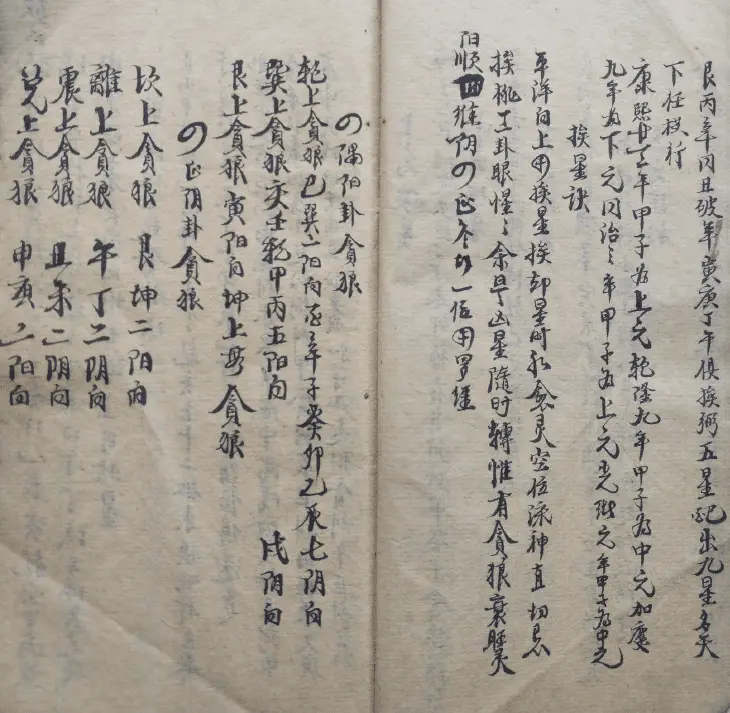 艮丙辛同且破军寅庚丁午俱挨弼五星配出九星名天
下任横行
康熙廿三年甲子为上元乾隆九年甲子为中元加庆
九年为下元同治三年甲子为上元光绪元年甲子为中元
挨星诀
平洋向上用挨星挨却星时永愈灵空位流神直切忌
挨挑工卦眼惺〻余是凶星隨时轉惟有貪狼衰
阳顺四维阴の正冬一位用罗经
の隅阳卦貪狼
乾上貪狼巳巽二阳向酉辛子癸卯乙辰七阴向
巽上貪狼亥壬乾甲丙五阳向 戌阴向
艮上貪狼寅阳向坤上毋貪狼
の正阴卦貪狼
坎上貪狼 艮坤二阳向
離上貪狼 午丁二阴向
震上貪狼 丑未二阴向
兑上貪狼 申亥二阳向